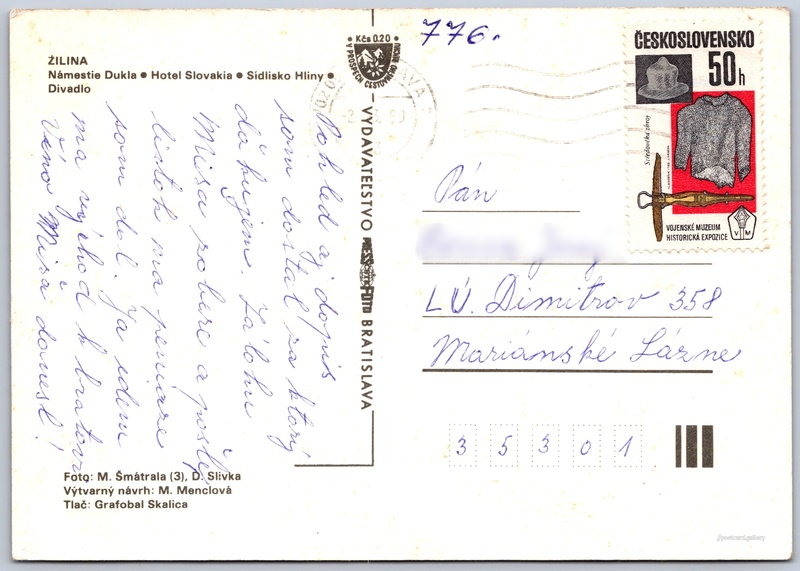 ŽILINA
Námestie Dukla ● Hotel Slovakia ● Sídlisko Hliny ●
Divadlo
Pohled aj dopis
som dostal za ktorý
dakujem. Zálohu
Miša zobere a pošle,
lístok na peniaze
som dal. Ja idem
na východ k bratovi
Víno Miša donesl!
Foto: M. Šmátrala (3), D. Slivka
Výtvarný návrh: M. Menclová
Tlač: Grafobal Skalica
Kčs 0.20
V PROSPECH CESTOVNÉHO RUCHU
VYDAVATEĽSTVO PRESSFOTO BRATISLAVA
776.
ČESKOSLOVENSKO
50h
Středověká zbroj
VOJENSKÉ MUZEUM
HISTORICKÁ EXPOZICE
V M
Pán
LÚ. Dimitrov 358
Mariánské Lázne
3 5 3 0 1
//postcard.gallery